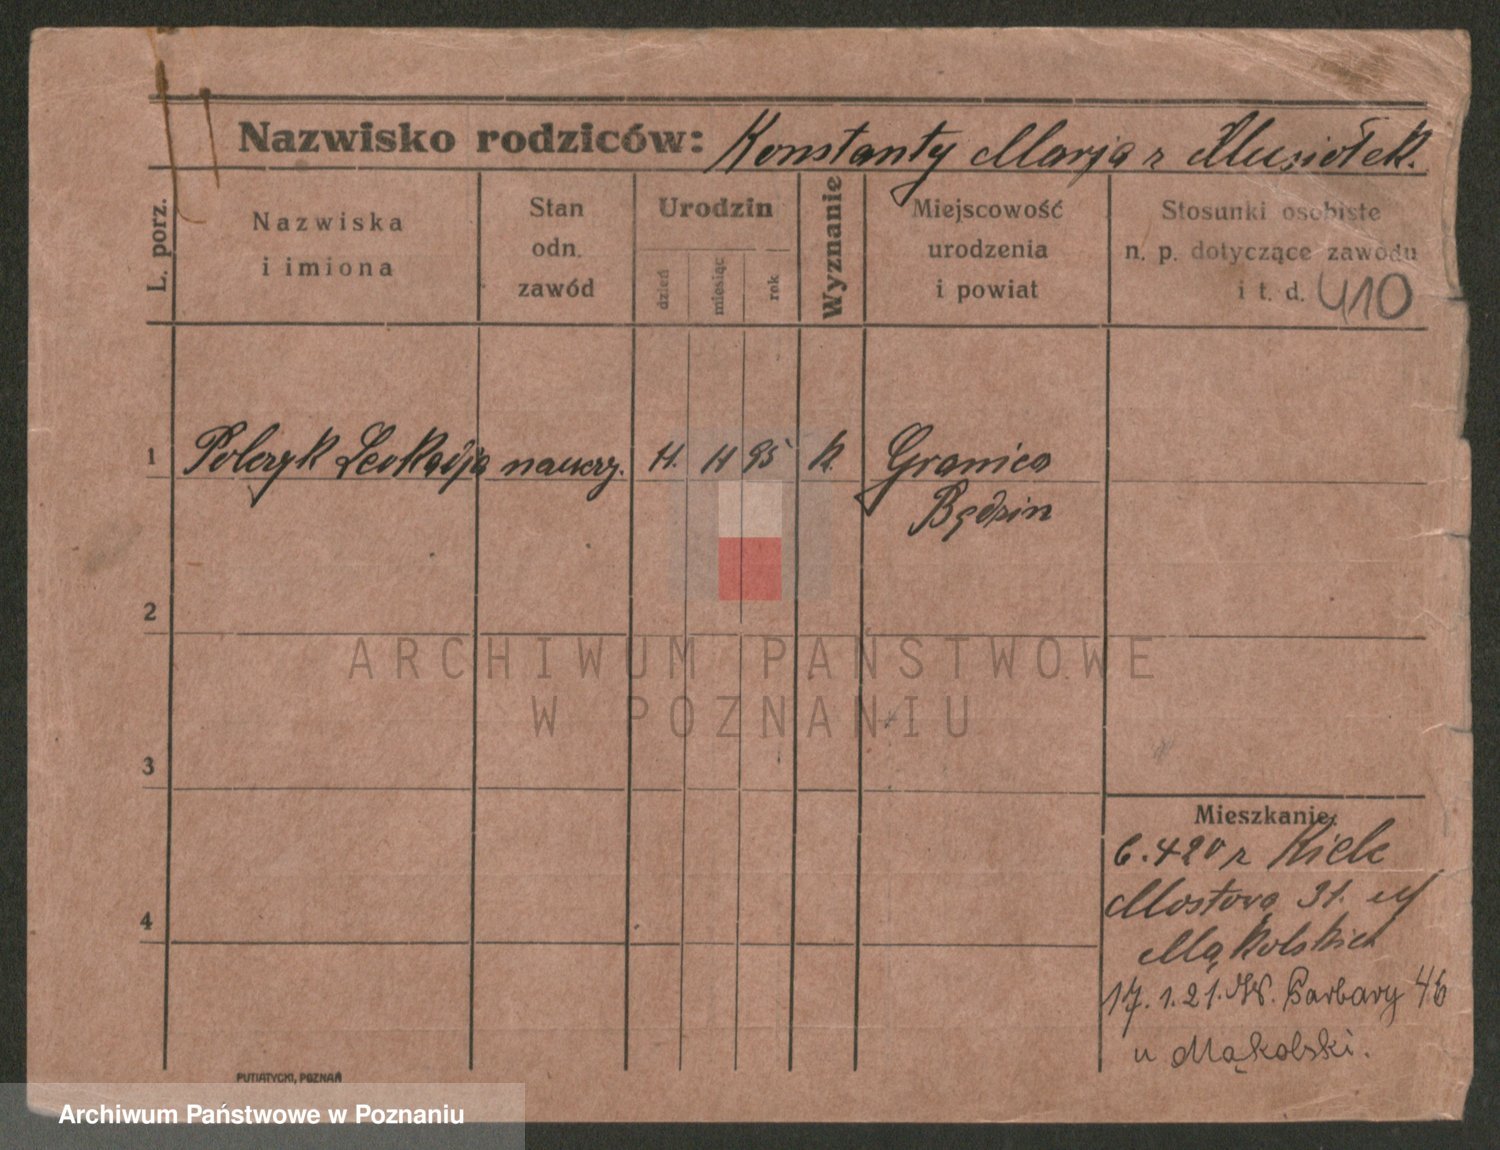 Nazwisko rodziców: Konstanty Marja z Musiołek.
L. porz.
Nazwiska
i imiona
Stan
odn.
zawód
Urodzin
dzień
miesiąc
rok
Wyznanie
Miejscowość
urodzenia
i powiat
Stosunki osobiste
n. p. dotyczące zawodu
i t. d. 410
1 Polczyk Leokadja nauczy. 11. 11 95 k. Granica
Będzin
2
ARCHIWUM PAŃSTWOWE
W POZNANIU
3
Mieszkanie:
6.420 z Kielc
Mostowa 31. u
Mąkolskich
4
17.1.21. W. Garbary 46
u Mąkolski.
PUTIATYCKI, POZNAŃ
Archiwum Państwowe w Poznaniu